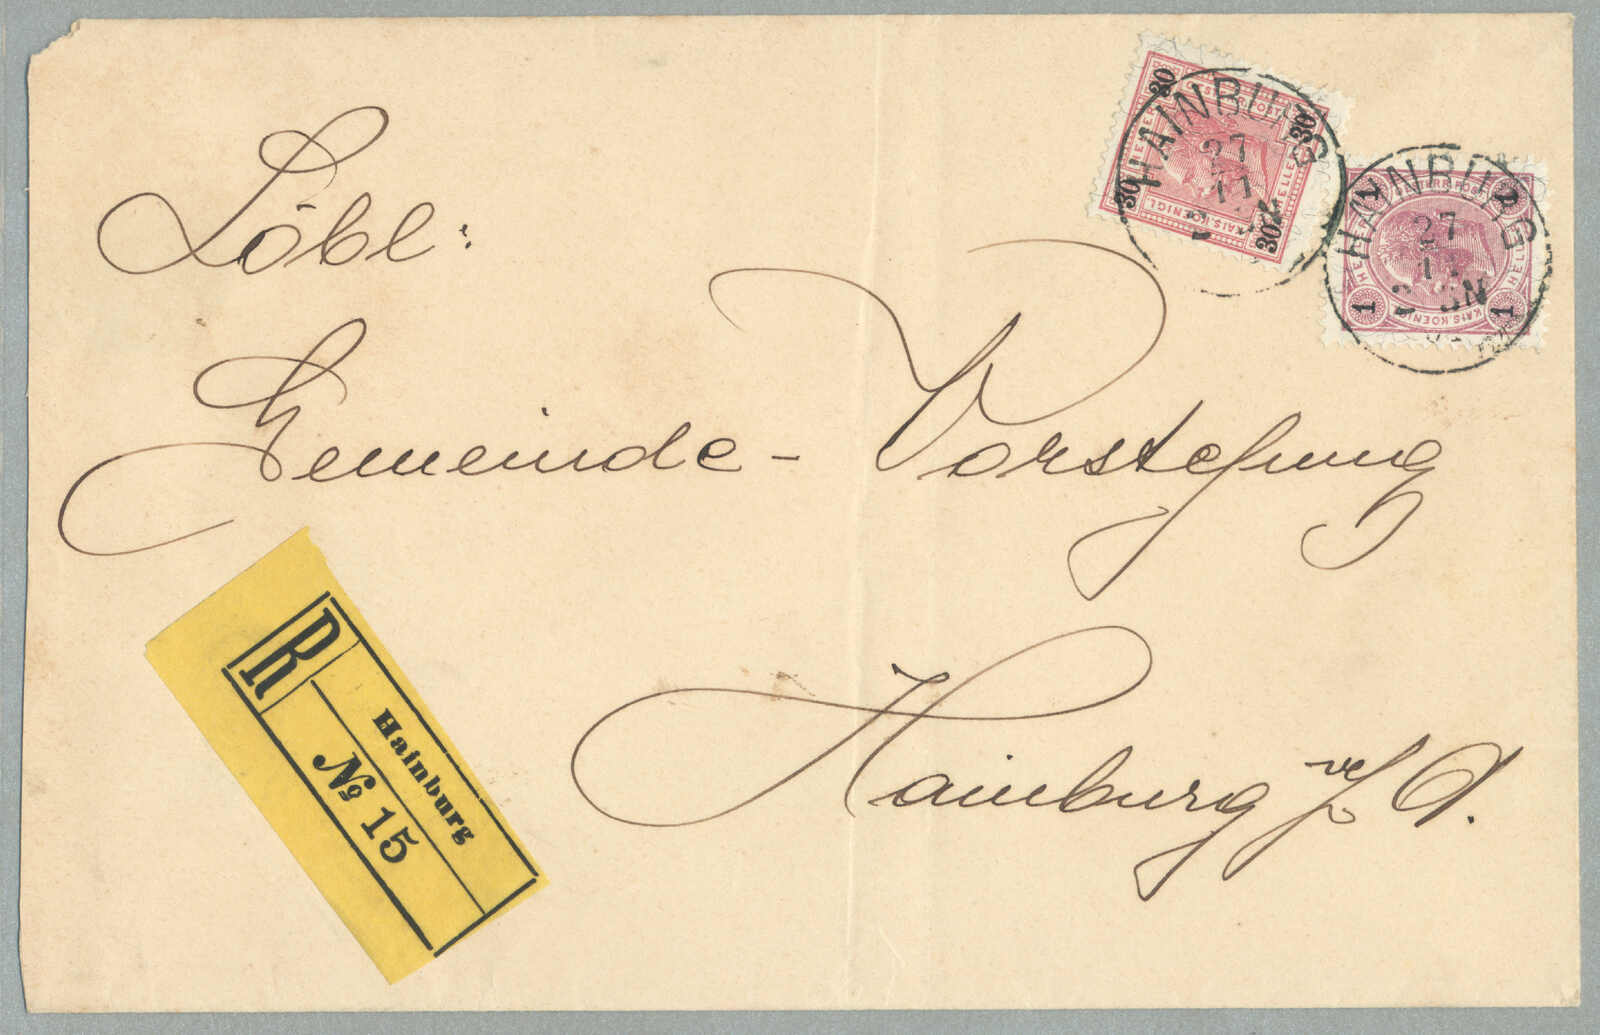 Löbl:
Gemeinde-Vorstehung
Hainburg a/ D.
R
Hainburg
No 15
HAINBURG
27
11
30
30
30
30
OESTERR. POST
HELLER
HELLER
KAIS. KOENIGL.
HAINBURG
27
11
N
1
1
1
1
OESTERR. POST
HELLER
KAIS. KOENIGL.